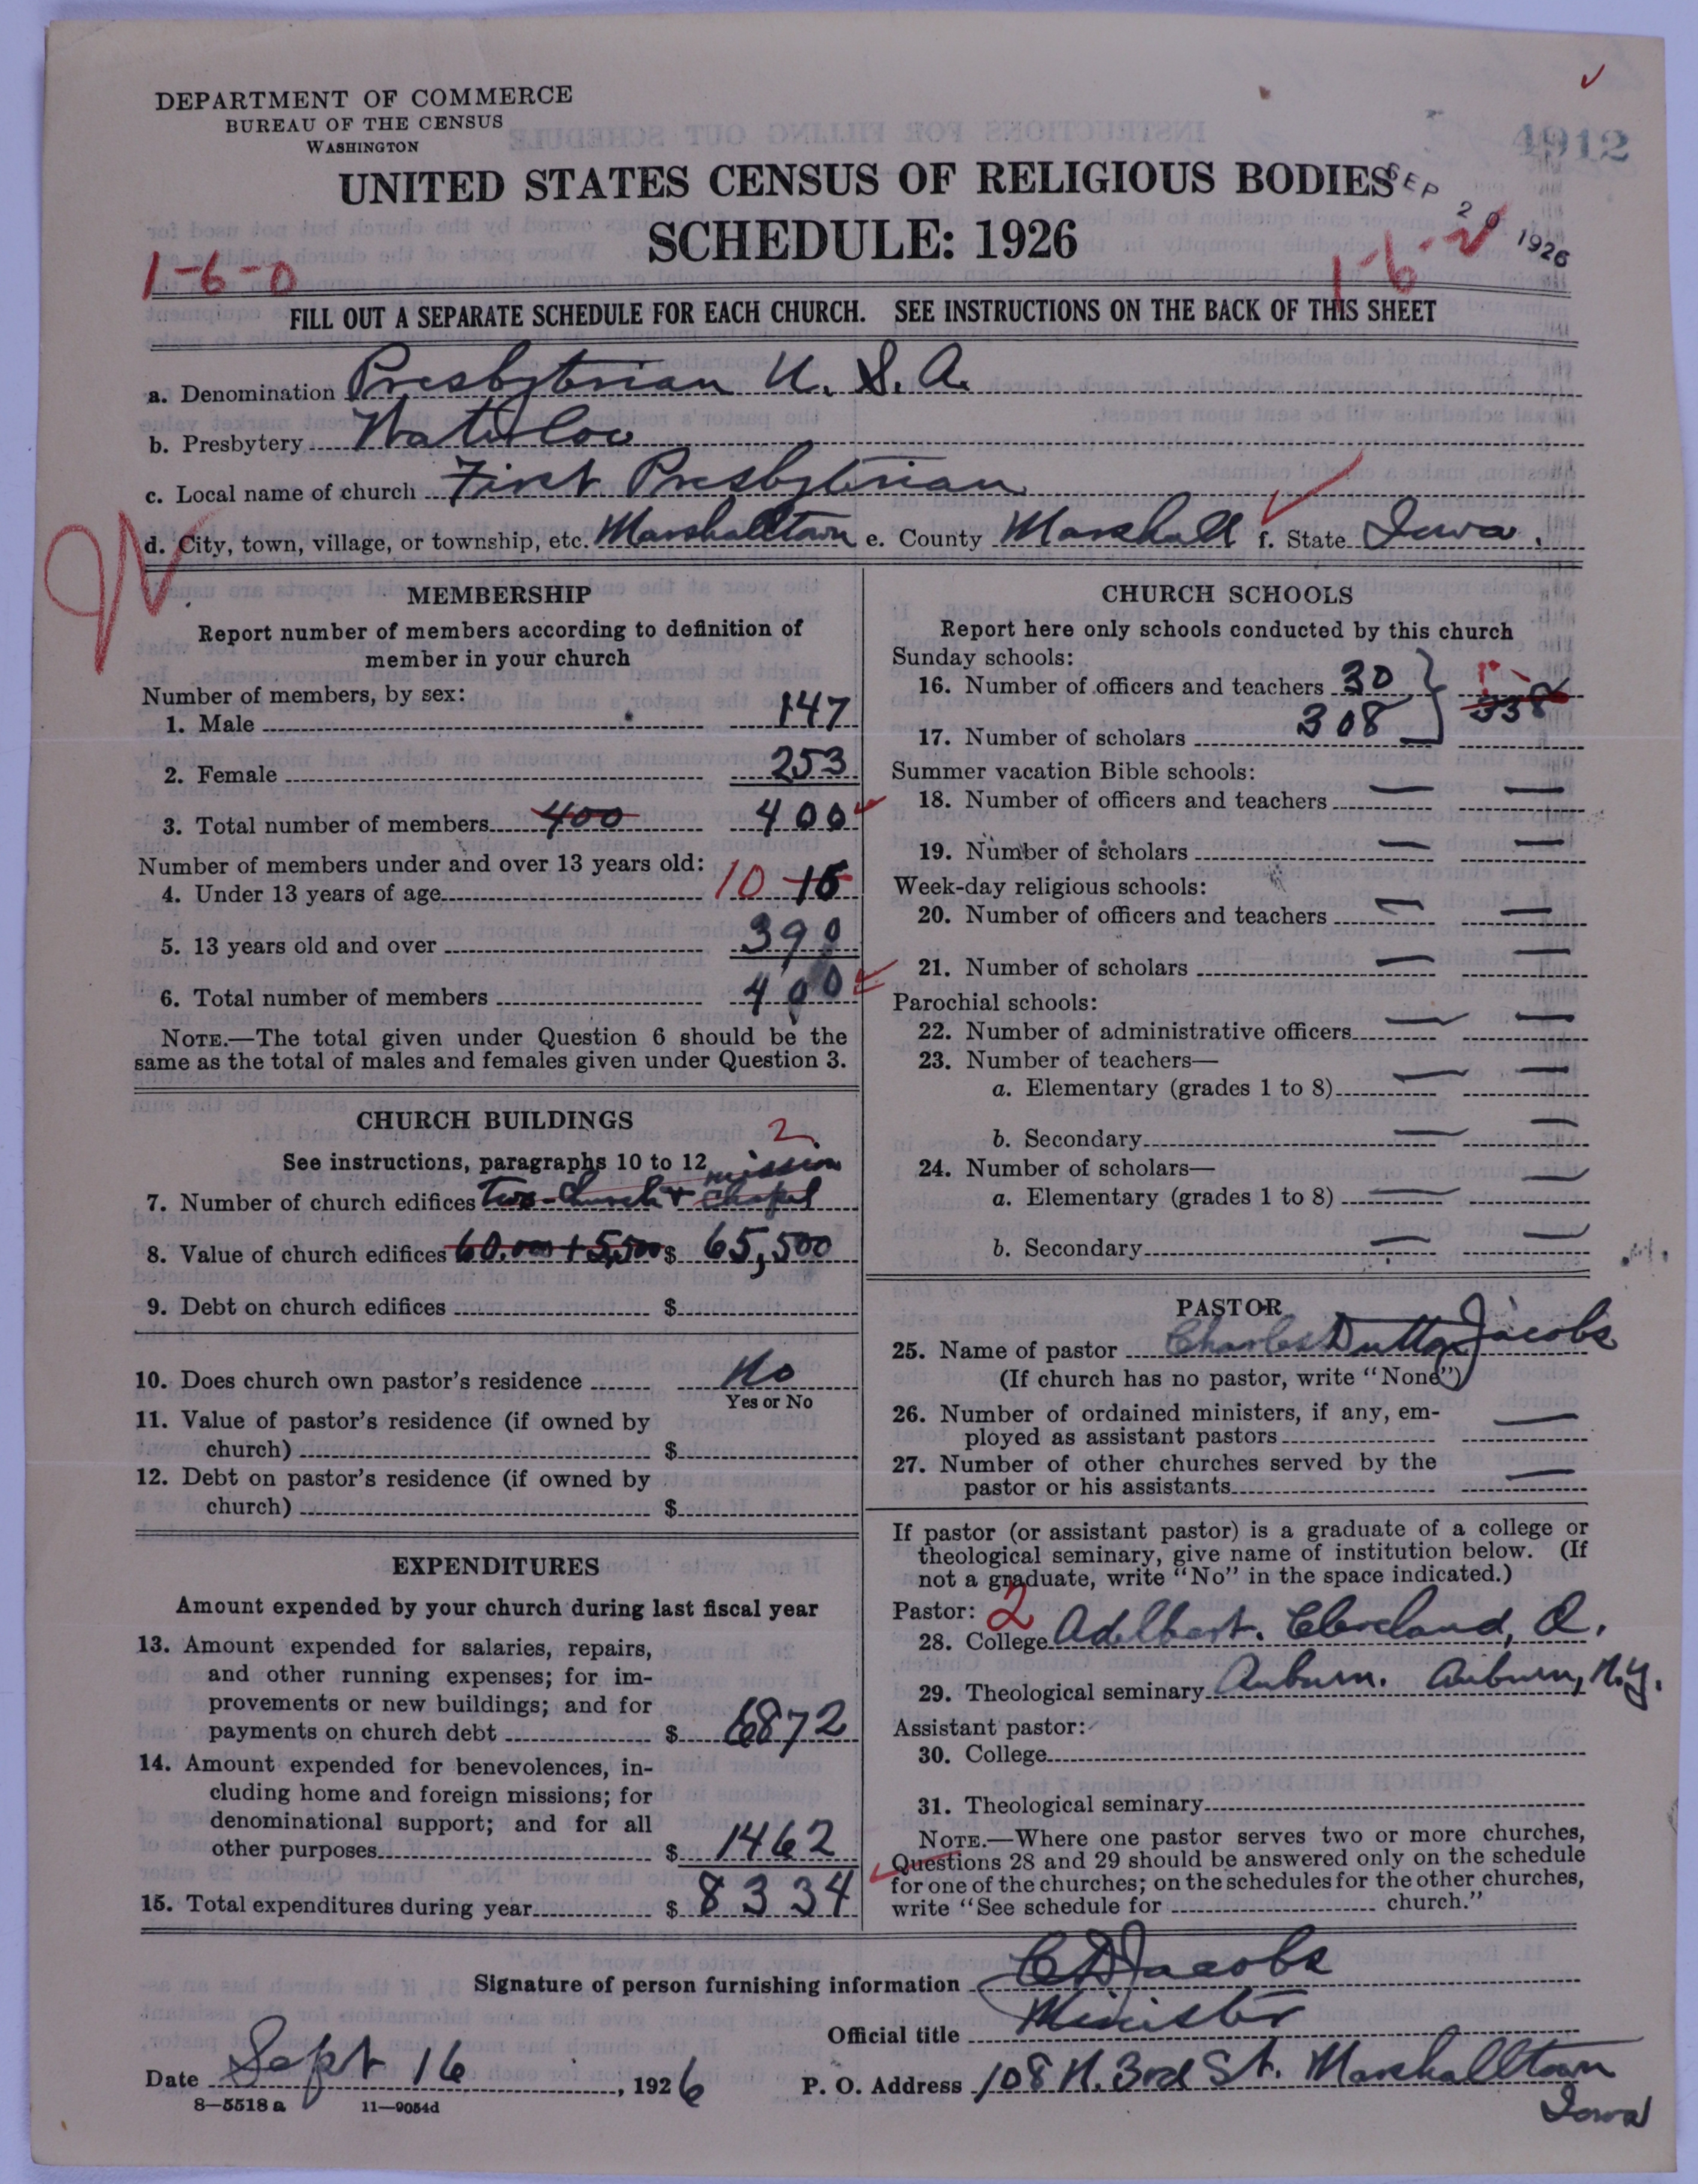 DEPARTMENT OF COMMERCE
BUREAU OF THE CENSUS
WASHINGTON
4912
UNITED STATES CENSUS OF RELIGIOUS BODIES
SEP 20 1926
SCHEDULE: 1926
1-6-0
1-6-2
FILL OUT A SEPARATE SCHEDULE FOR EACH CHURCH. SEE INSTRUCTIONS ON THE BACK OF THIS SHEET
a. Denomination Presbyterian U. S. A.
b. Presbytery Waterloo
c. Local name of church First Presbyterian
d. City, town, village, or township, etc. Marshalltown e. County Marshall f. State Iowa.
MEMBERSHIP
Report number of members according to definition of
member in your church
Number of members, by sex:
1. Male 147
2. Female 253
3. Total number of members 400 400
Number of members under and over 13 years old:
4. Under 13 years of age 10 16
5. 13 years old and over 390
6. Total number of members 400
NOTE.—The total given under Question 6 should be the
same as the total of males and females given under Question 3.
CHURCH BUILDINGS
2
See instructions, paragraphs 10 to 12
mission
7. Number of church edifices Two-Church + Chapel
8. Value of church edifices 60,000 + 5,500 $ 65,500
9. Debt on church edifices $
10. Does church own pastor's residence No
Yes or No
11. Value of pastor's residence (if owned by
church) $
12. Debt on pastor's residence (if owned by
church) $
EXPENDITURES
Amount expended by your church during last fiscal year
13. Amount expended for salaries, repairs,
and other running expenses; for im-
provements or new buildings; and for
payments on church debt $ 6872
14. Amount expended for benevolences, in-
cluding home and foreign missions; for
denominational support; and for all
other purposes $ 1462
15. Total expenditures during year $ 8334
CHURCH SCHOOLS
Report here only schools conducted by this church
Sunday schools:
16. Number of officers and teachers 30
338
17. Number of scholars 308
Summer vacation Bible schools:
18. Number of officers and teachers — —
19. Number of scholars — —
Week-day religious schools:
20. Number of officers and teachers — —
21. Number of scholars — —
Parochial schools:
22. Number of administrative officers — —
23. Number of teachers—
a. Elementary (grades 1 to 8) — —
b. Secondary — —
24. Number of scholars—
a. Elementary (grades 1 to 8) — —
b. Secondary — —
PASTOR
25. Name of pastor Charles Dutton Jacobs
(If church has no pastor, write "None")
26. Number of ordained ministers, if any, em-
ployed as assistant pastors —
27. Number of other churches served by the
pastor or his assistants —
If pastor (or assistant pastor) is a graduate of a college or
theological seminary, give name of institution below. (If
not a graduate, write "No" in the space indicated.)
Pastor: 2
28. College Adelbert. Cleveland, O.
29. Theological seminary Auburn. Auburn, N.Y.
Assistant pastor:
30. College
31. Theological seminary
NOTE.—Where one pastor serves two or more churches,
Questions 28 and 29 should be answered only on the schedule
for one of the churches; on the schedules for the other churches,
write "See schedule for church."
Signature of person furnishing information C D Jacobs
Official title Minister
Date Sept 16, 1926 P. O. Address 108 N. 3rd St. Marshalltown
Iowa
8—5518 a 11—9054d